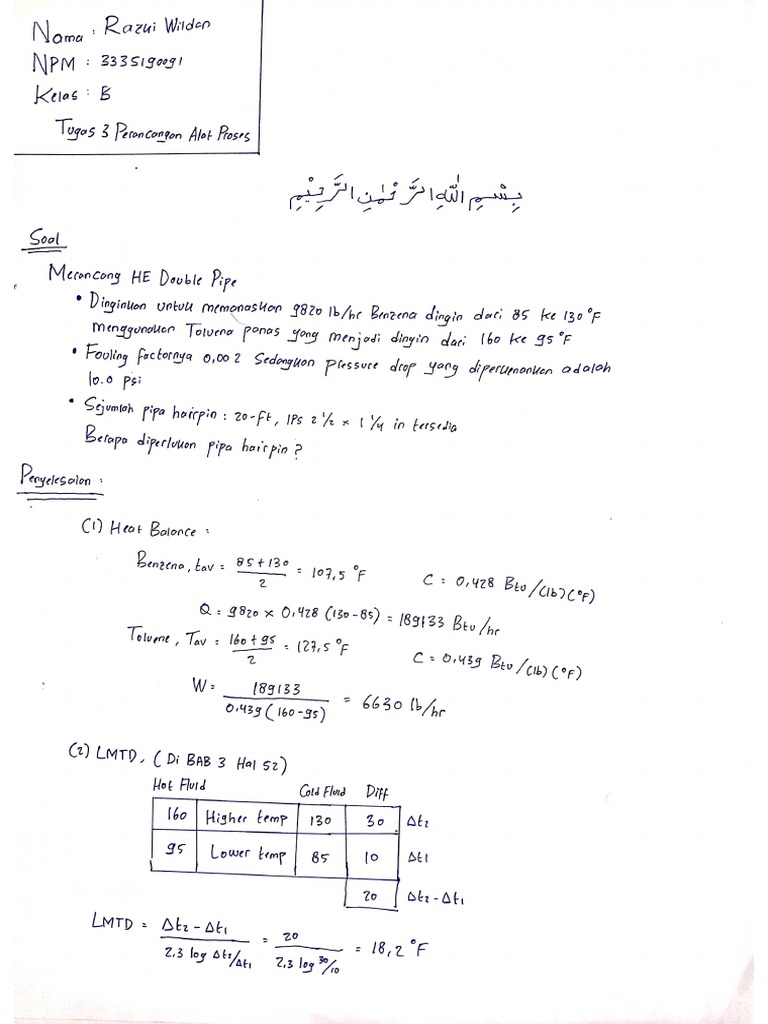 Nama : Razui Wildan
NPM : 3335190091
Kelas : B
Tugas 3 Perancangan Alat Proses
بِسْمِ اللّٰهِ الرَّحْمٰنِ الرَّحِيْمِ
Soal
Merancang HE Double Pipe
• Dinginkan untuk memanaskan 9820 lb/hr Benzena dingin dari 85 ke 130 °F
menggunakan Toluena panas yang menjadi dingin dari 160 ke 95 °F
• Fouling factornya 0,002 Sedangkan pressure drop yang diperkenankan adalah
10.0 psi
• Sejumlah pipa hairpin : 20-ft, IPS 2 1/2 x 1 1/4 in tersedia
Berapa diperlukan pipa hairpin ?
Penyelesaian :
(1) Heat Balance :
Benzena, tav = (85+130)/2 = 107,5 °F C = 0,428 Btu/(lb)(°F)
Q = 9820 x 0,428 (130-85) = 189133 Btu/hr
Toluene, Tav = (160+95)/2 = 127,5 °F C = 0,439 Btu/(lb)(°F)
W = 189133 / 0,439(160-95) = 6630 lb/hr
(2) LMTD, (Di BAB 3 Hal 52)
Hot Fluid Cold Fluid Diff
160 Higher temp 130 30 Δt2
95 Lower temp 85 10 Δt1
20 Δt2 - Δt1
LMTD = Δt2 - Δt1 / 2,3 log Δt2/Δt1 = 20 / 2,3 log 30/10 = 18,2 °F